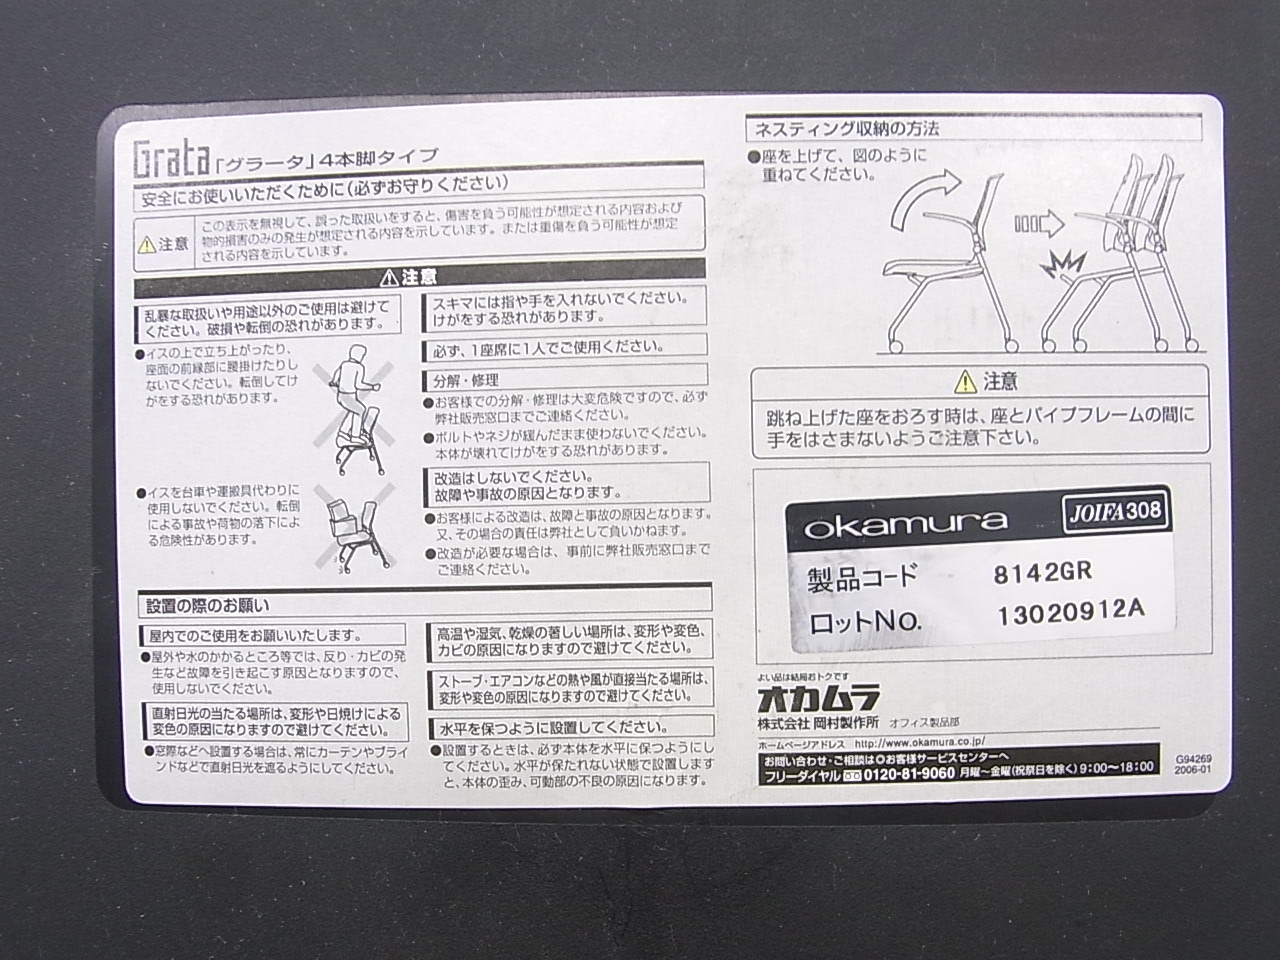 Grata「グラータ」4本脚タイプ
安全にお使いいただくために(必ずお守りください)
⚠注意
この表示を無視して、誤った取扱いをすると、傷害を負う可能性が想定される内容および
物的損害のみの発生が想定される内容を示しています。または重傷を負う可能性が想定
される内容を示しています。
⚠注意
乱暴な取扱いや用途以外のご使用は避けて
ください。破損や転倒の恐れがあります。
●イスの上で立ち上がったり、
座面の前縁部に腰掛けたりし
ないでください。転倒してけ
がをする恐れがあります。
●イスを台車や運搬具代わりに
使用しないでください。転倒
による事故や荷物の落下によ
る危険性があります。
スキマには指や手を入れないでください。
けがをする恐れがあります。
必ず、1座席に1人でご使用ください。
分解・修理
●お客様での分解・修理は大変危険ですので、必ず
弊社販売窓口までご連絡ください。
●ボルトやネジが緩んだまま使わないでください。
本体が壊れてけがをする恐れがあります。
改造はしないでください。
故障や事故の原因となります。
●お客様による改造は、故障と事故の原因となります。
又、その場合の責任は弊社として負いかねます。
●改造が必要な場合は、事前に弊社販売窓口まで
ご連絡ください。
設置の際のお願い
屋内でのご使用をお願いいたします。
●屋外や水のかかるところ等では、反り・カビの発
生など故障を引き起こす原因となりますので、
使用しないでください。
直射日光の当たる場所は、変形や日焼けによる
変色の原因になりますので避けてください。
●窓際などへ設置する場合は、常にカーテンやブライ
ンドなどで直射日光を遮るようにしてください。
高温や湿気、乾燥の著しい場所は、変形や変色、
カビの原因になりますので避けてください。
ストーブ・エアコンなどの熱や風が直接当たる場所は、
変形や変色の原因になりますので避けてください。
水平を保つように設置してください。
●設置するときは、必ず本体を水平に保つようにし
てください。水平が保たれない状態で設置します
と、本体の歪み、可動部の不良の原因になります。
ネスティング収納の方法
●座を上げて、図のように
重ねてください。
⚠注意
跳ね上げた座をおろす時は、座とパイプフレームの間に
手をはさまないようご注意下さい。
okamura
JOIFA308
製品コード 8142GR
ロットNo. 13020912A
よい品は結局おトクです
オカムラ
株式会社 岡村製作所 オフィス製品部
ホームページアドレス http://www.okamura.co.jp/
お問い合わせ・ご相談は○お客様サービスセンターへ
フリーダイヤル 0120-81-9060 月曜〜金曜(祝祭日を除く)9:00〜18:00
G94269
2006-01